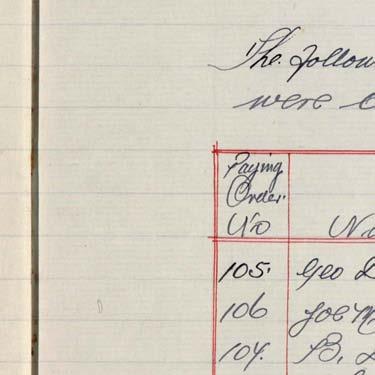 The follow
were
Paying
Order.
No N
105. Geo D
106 Joe M
107. B.